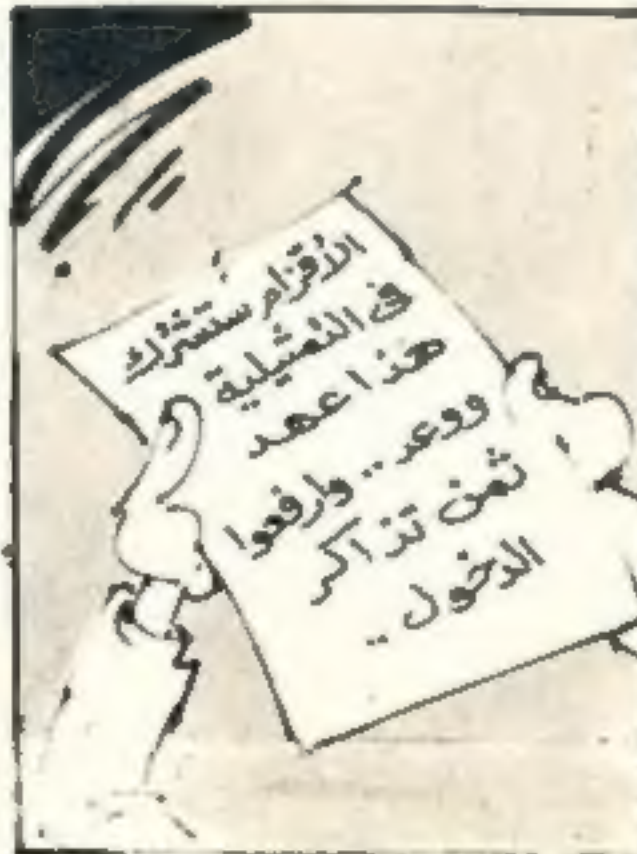 الأقزام ستشترك
في التمثيلية
هذا عهد
ووعد .. وارفعوا
ثمن تذاكر
الدخول ..